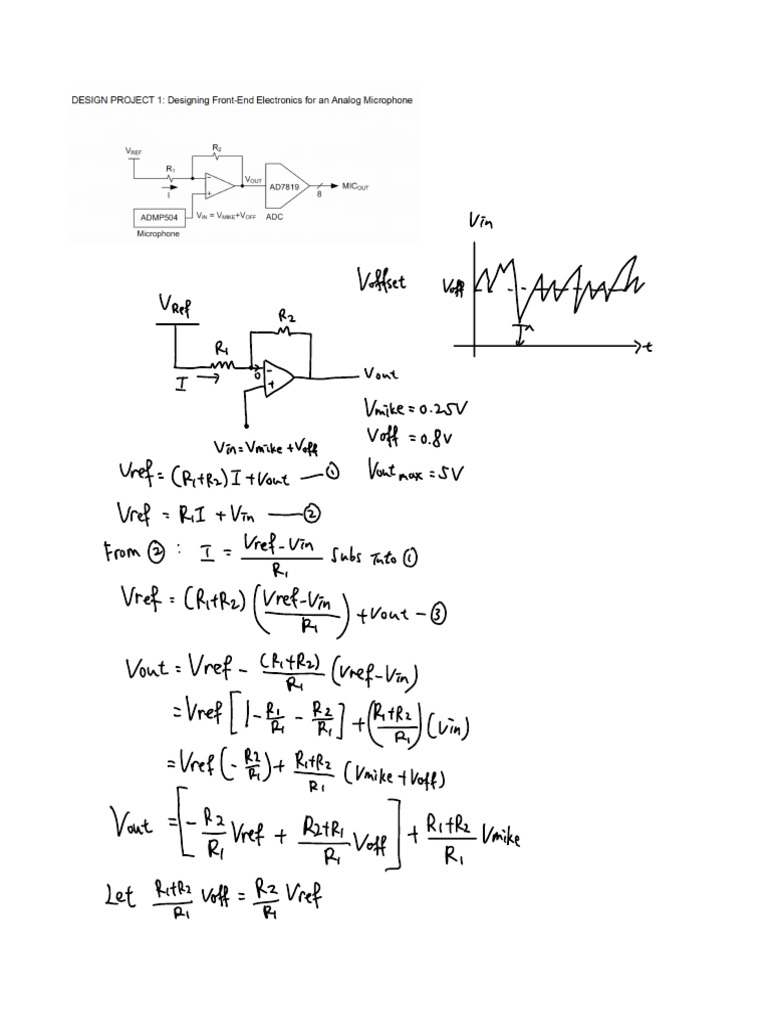 DESIGN PROJECT 1: Designing Front-End Electronics for an Analog Microphone
VREF
R2
R1
I
-
+
VOUT
AD7819
8
MICOUT
ADMP504
VIN = VMIKE+VOFF
ADC
Microphone
Vin
Voffset
Voff
t
VRef
R2
R1
I
0
-
+
Vout
Vin = Vmike + Voff
Vmike = 0.25V
Voff = 0.8V
Vout max = 5V
Vref = (R1+R2) I + Vout — ①
Vref = R1I + Vin — ②
From ② : I = (Vref - Vin) / R1 Subs into ①
Vref = (R1+R2) ((Vref-Vin) / R1) + Vout — ③
Vout = Vref - (R1+R2)/R1 (Vref-Vin)
= Vref [1 - R1/R1 - R2/R1] + ((R1+R2)/R1) (Vin)
= Vref (-R2/R1) + (R1+R2)/R1 (Vmike + Voff)
Vout = [-R2/R1 Vref + (R2+R1)/R1 Voff] + (R1+R2)/R1 Vmike
Let (R1+R2)/R1 Voff = R2/R1 Vref